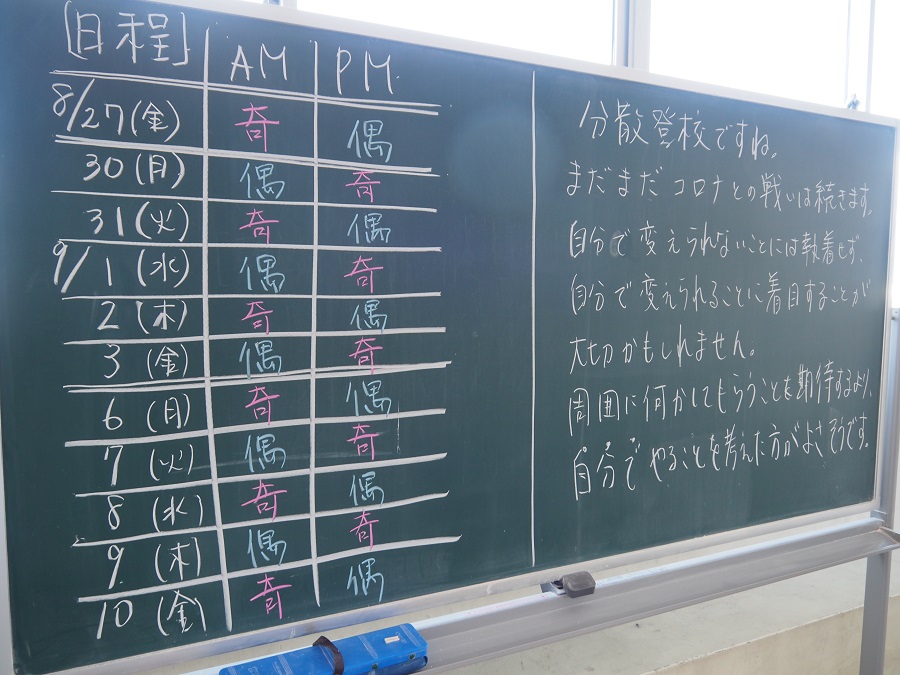 [日程] AM PM
8/27(金) 奇 偶
30(月) 偶 奇
31(火) 奇 偶
9/1(水) 偶 奇
2(木) 奇 偶
3(金) 偶 奇
6(月) 奇 偶
7(火) 偶 奇
8(水) 奇 偶
9(木) 偶 奇
10(金) 奇 偶
分散登校ですね。
まだまだコロナとの戦いは続きます。
自分で変えられないことには執着せず、
自分で変えられることに着目することが
大切かもしれません。
周囲に何かしてもらうことを期待するより、
自分でやることを考えた方がよさそうです。